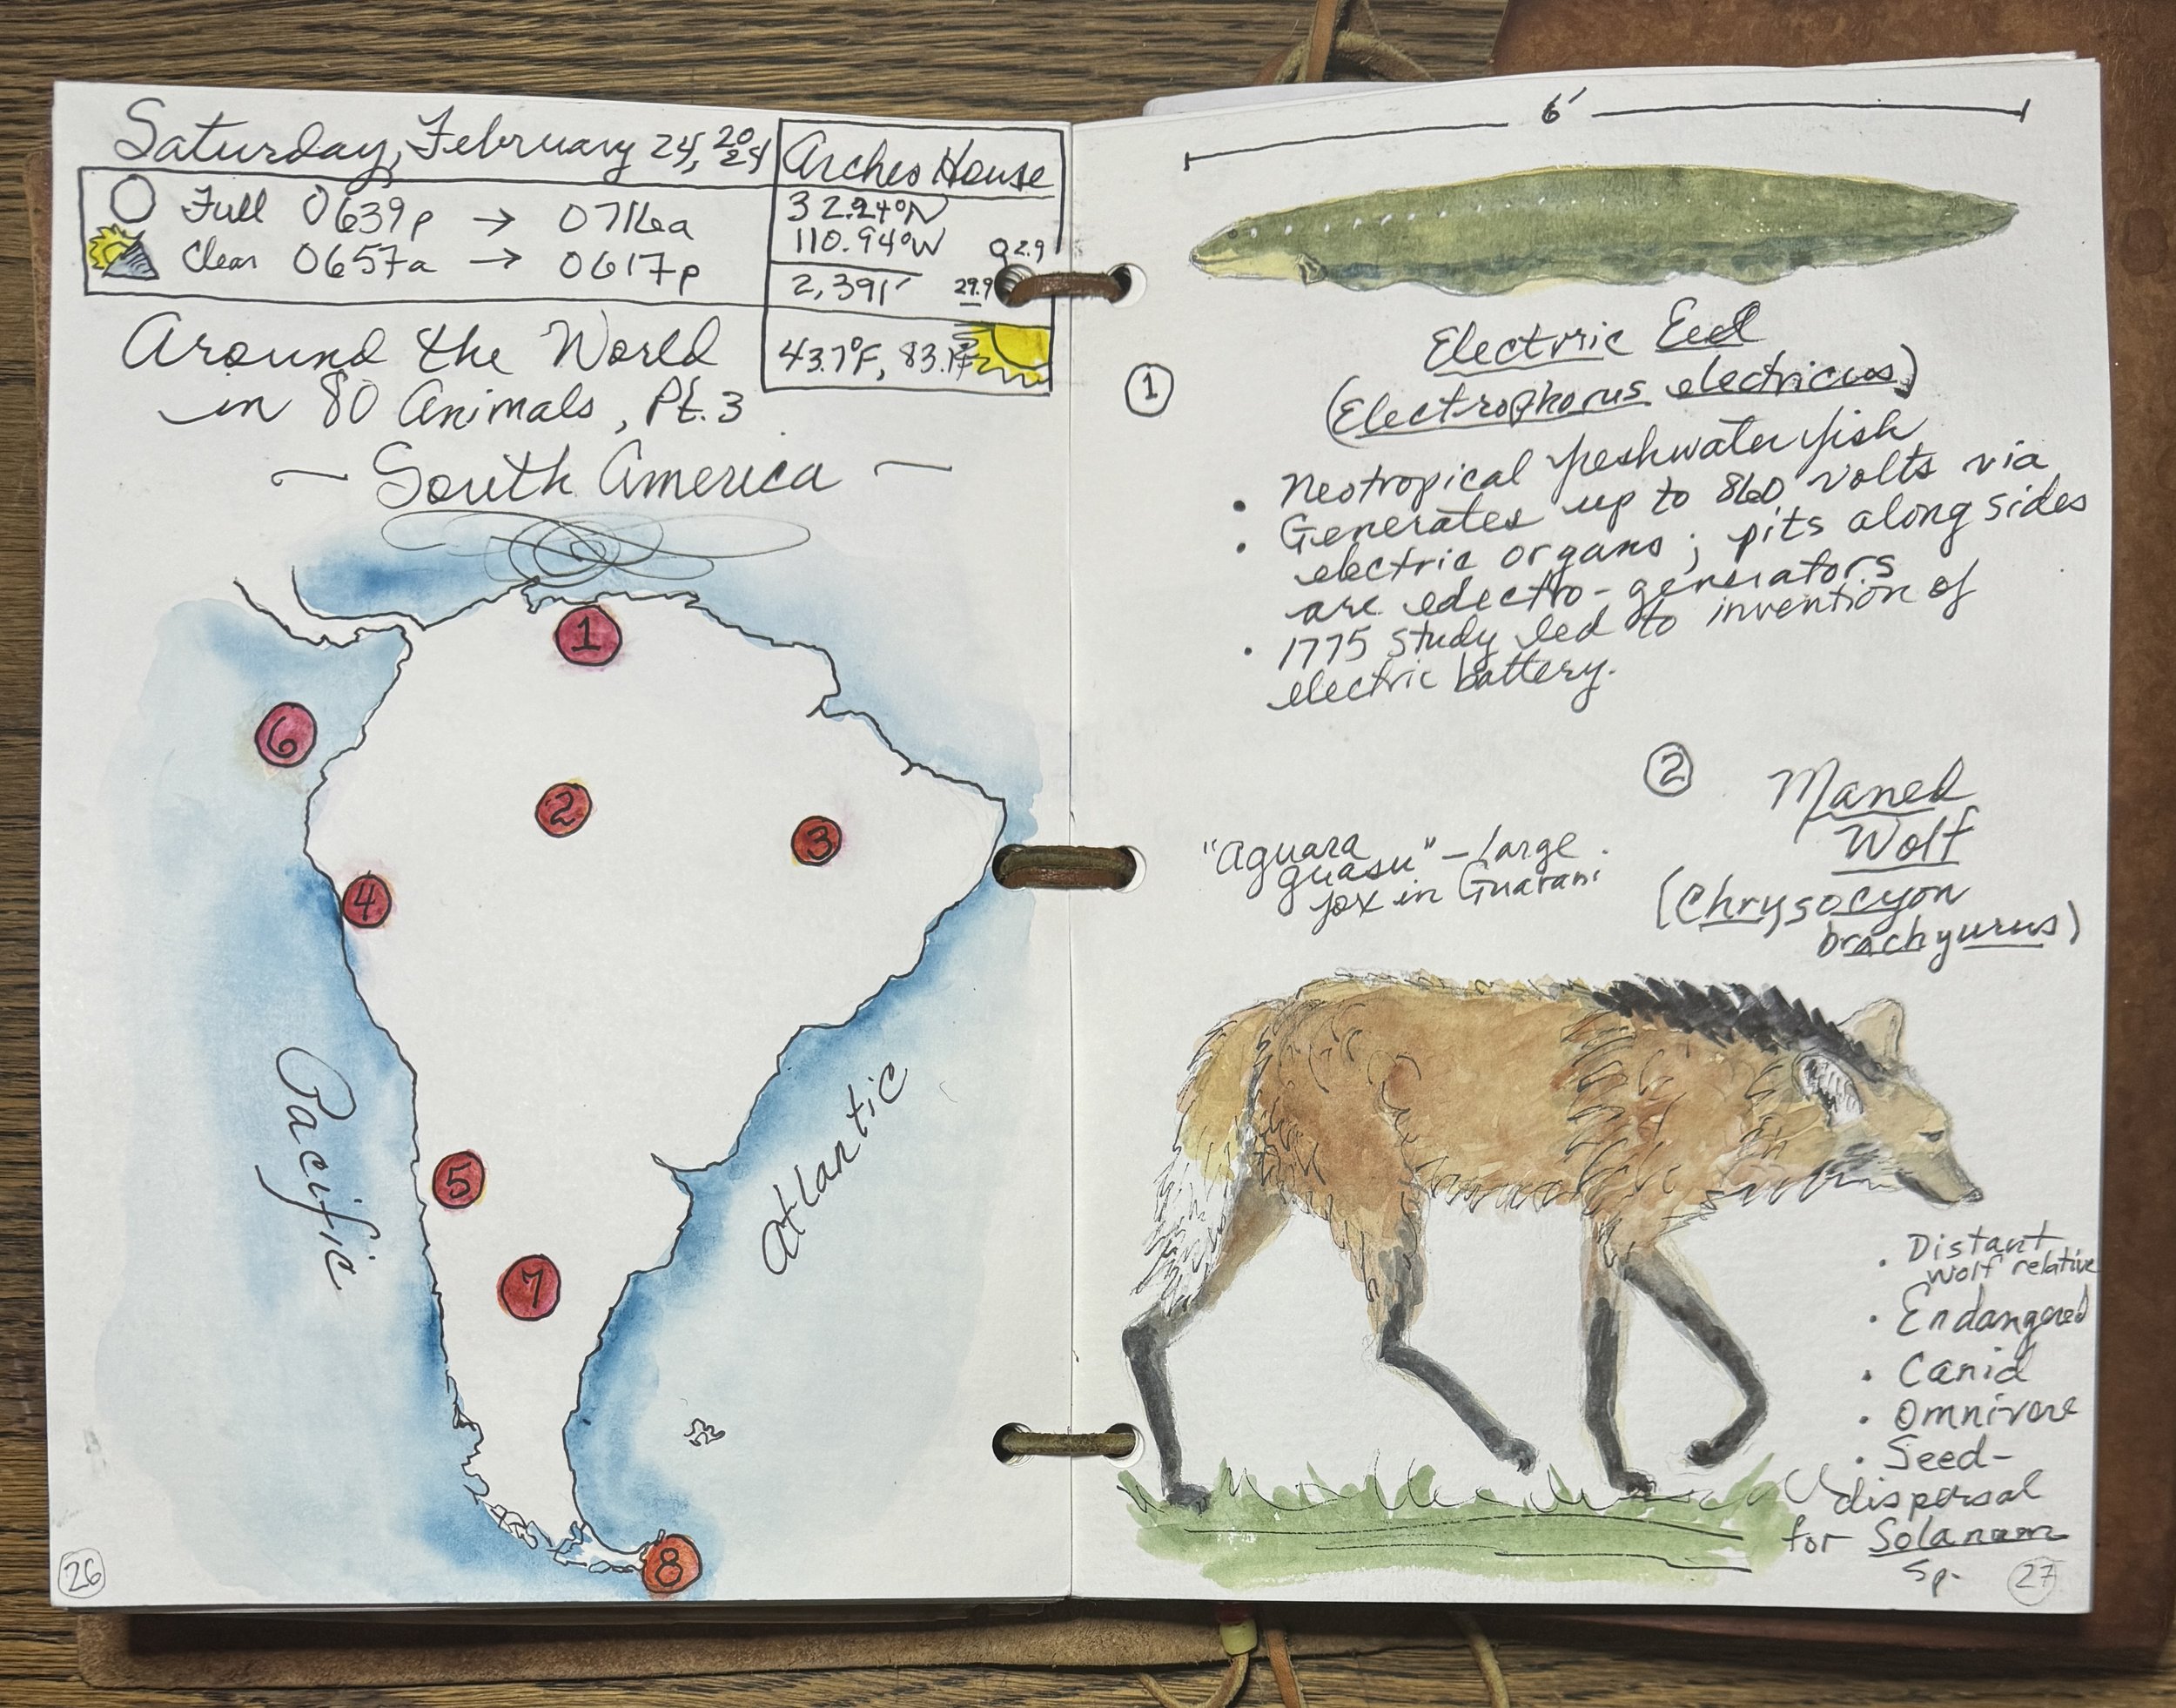 Saturday, February 24, 2024
Arches House
Full 0639p → 0716a
Clear 0657a → 0617p
32.24°N
110.94°W
2.9
2,391'
29.9
43.7°F, 83.1°F
Around the World
in 80 Animals, Pt. 3
~ South America ~
1
6
2
3
4
5
7
8
Pacific
Atlantic
26
6'
1
Electric Eel
(Electrophorus electricus)
• Neotropical freshwater fish
• Generates up to 860 volts via
electric organs; pits along sides
are electro-generators
• 1775 study led to invention of
electric battery.
2
Maned
Wolf
(Chrysocyon
brachyurus)
"Aguara
guasu" – large
fox in Guarani
• Distant
wolf relative
• Endangered
• Canid
• Omnivore
• Seed-
dispersal
for Solanum
Sp.
27